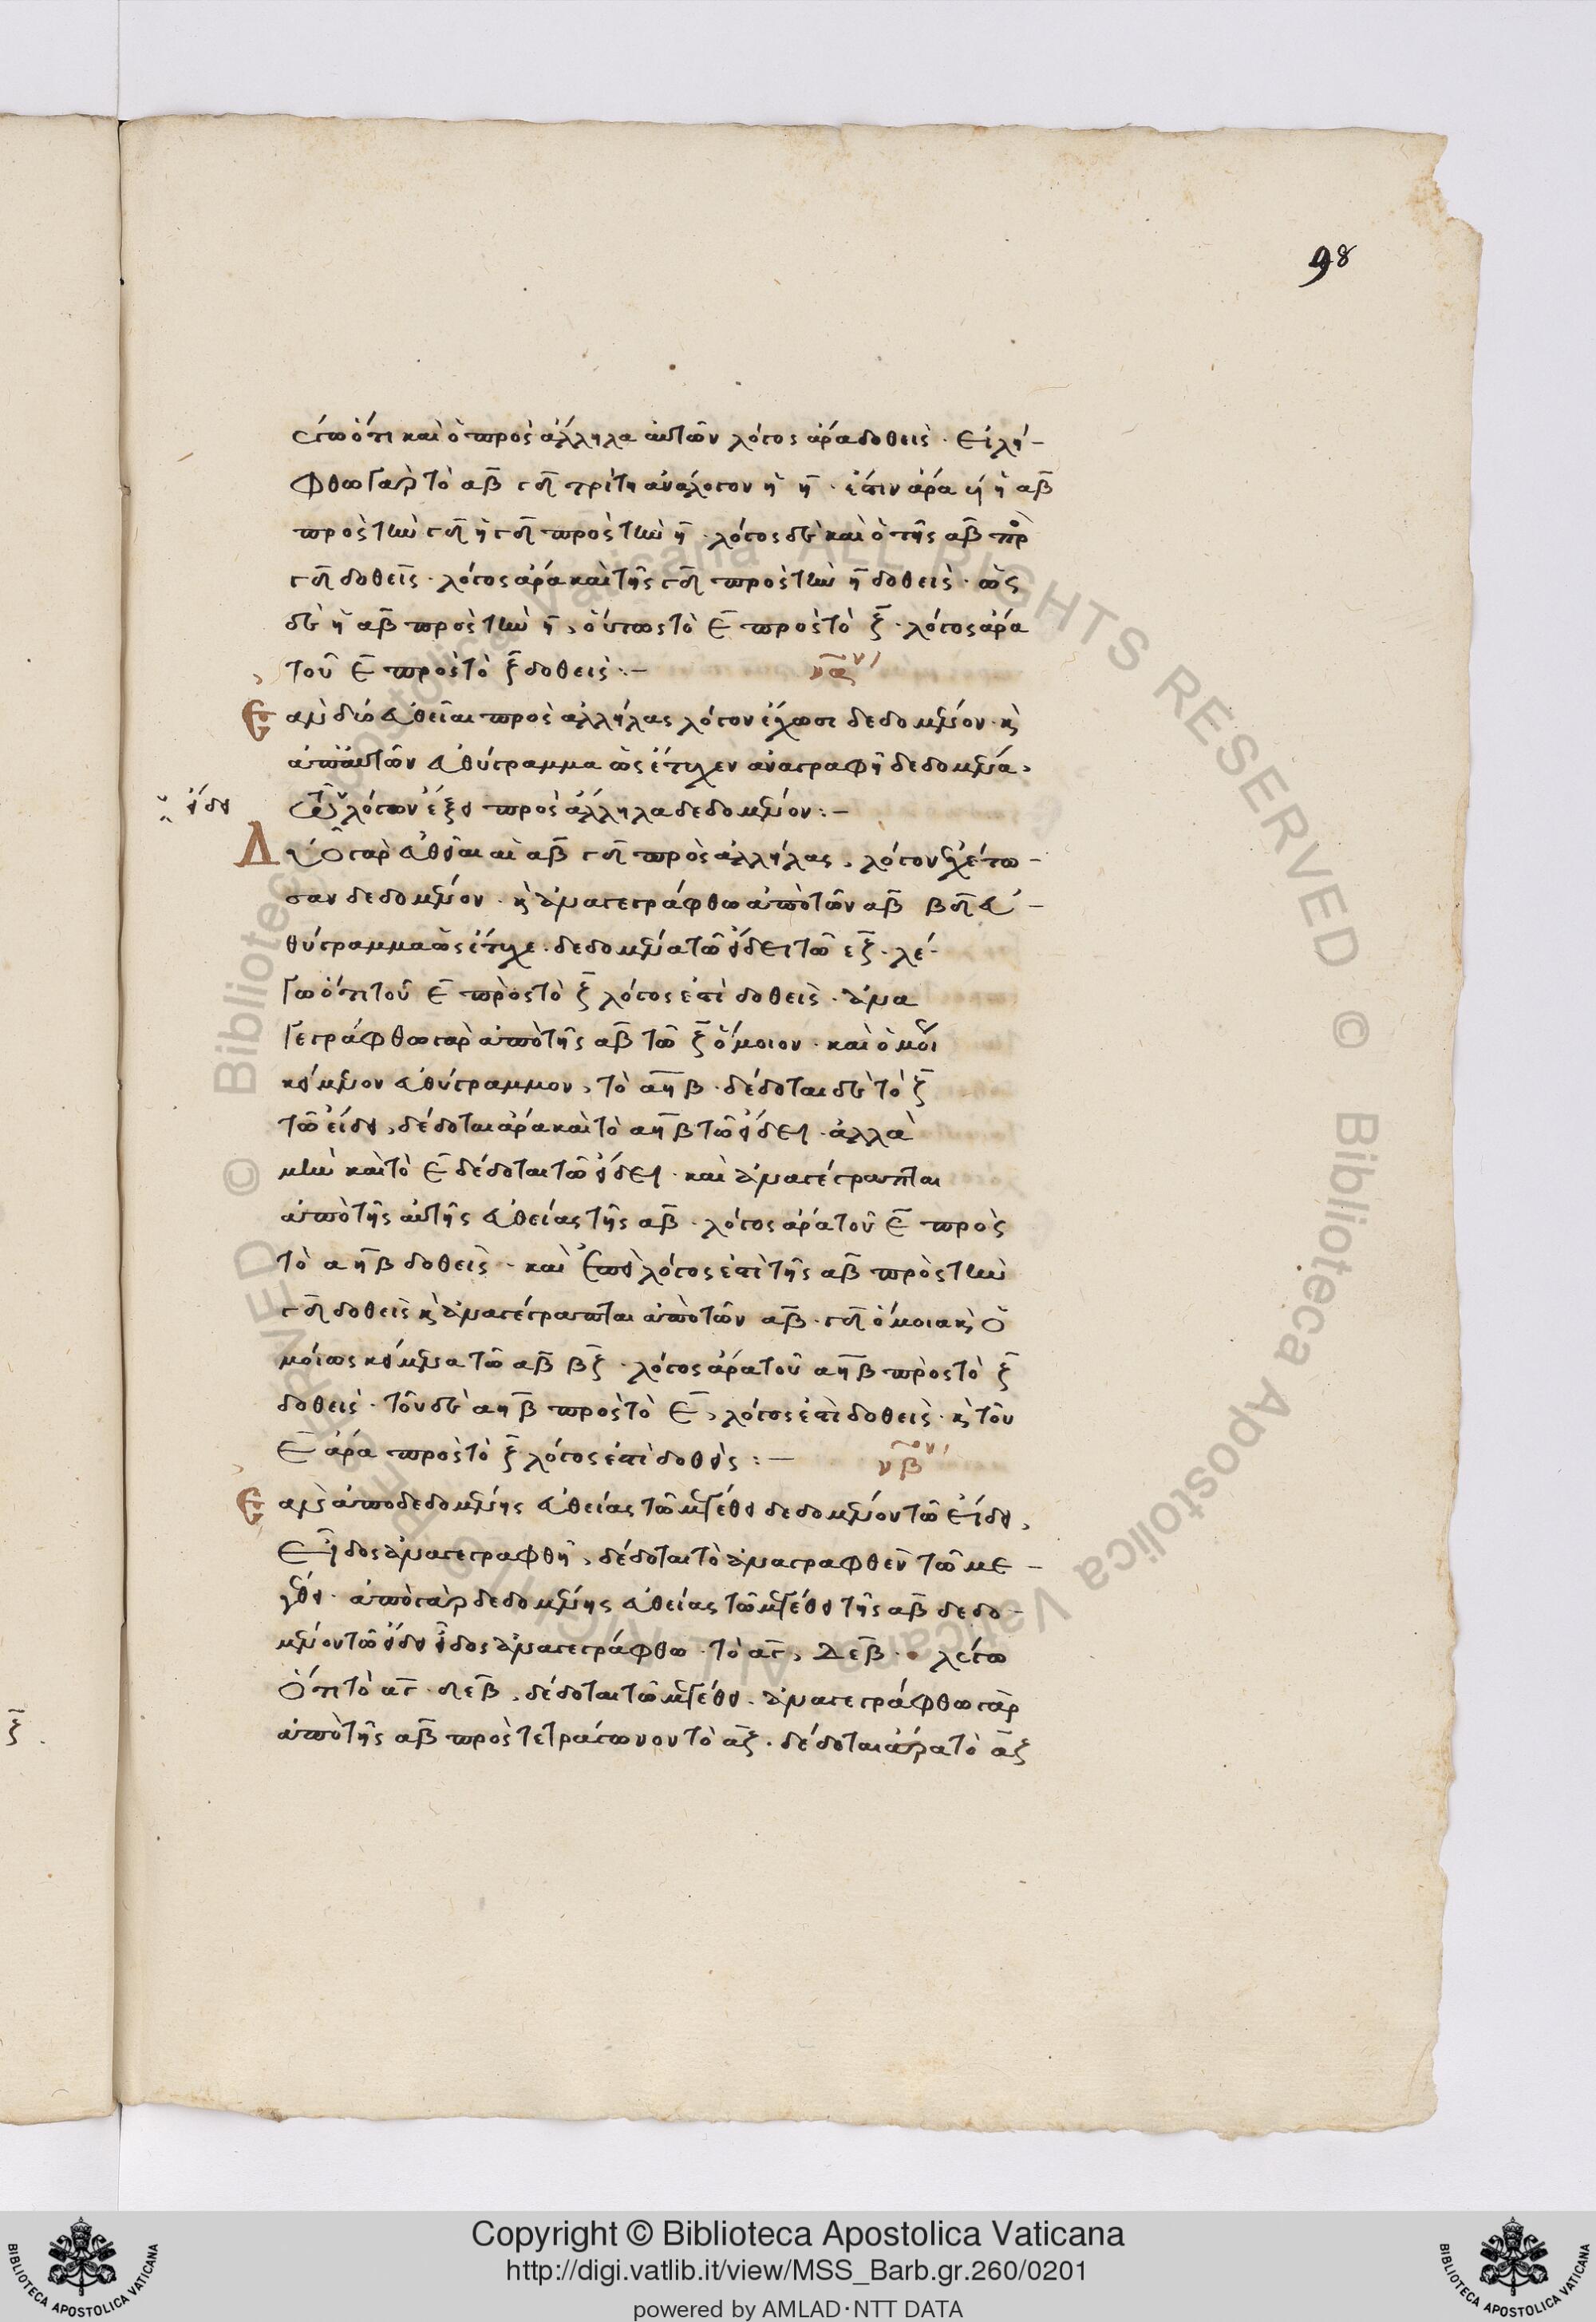 98
γω ὅτι καὶ ὁ πρὸς ἄλληλα αὐτῶν λόγος ἄρα δοθεὶς· εἰλή-
φθω γὰρ τὸ αβ γδ τρίτη ἀνάλογον ἡ η· ἔστιν ἄρα ὡς ἡ αβ
πρὸς τὴν γδ ἡ γδ πρὸς τὴν η· λόγος δὲ καὶ ὁ τῆς αβ πρ
γδ δοθεὶς· λόγος ἄρα καὶ τῆς γδ πρὸς τὴν η δοθεὶς· ὡς
δὲ ἡ αβ πρὸς τὴν η, οὕτως τὸ ε πρὸς τὸ ζ· λόγος ἄρα
τοῦ ε πρὸς τὸ ζ δοθεὶς:– να
Ἐὰν δύο εὐθεῖαι πρὸς ἀλλήλας λόγον ἔχωσι δεδομένον· κ
ἀπ' αὐτῶν εὐθύγραμμα ὡς ἔτυχεν ἀναγραφῆ δεδομένα,
λόγον ἕξει πρὸς ἄλληλα δεδομένον:–
εἴδει
Δύο γὰρ εὐθεῖαι αἱ αβ γδ πρὸς ἀλλήλας, λόγον ἐχέτω-
σαν δεδομένον· κ ἀναγεγράφθω ἀπὸ τῶν αβ βδ εὐ-
θύγραμμα ὡς ἔτυχε· δεδομένα τῶ εἴδει τῶ εζ· λέ-
γω ὅτι τοῦ ε πρὸς τὸ ζ λόγος ἐστὶ δοθεὶς· ἀνα
γεγράφθω γὰρ ἀπὸ τῆς αβ τῶ ζ ὅμοιον· καὶ ὁμοί
κείμενον εὐθύγραμμον, τὸ αηβ· δέδοται δὲ τὸ ζ
τῶ εἴδει, δέδοται ἄρα καὶ τὸ αηβ τῶ εἴδει· ἀλλὰ
μὴν καὶ τὸ ε δέδοται τῶ εἴδει· καὶ ἀναγέγραπται
ἀπὸ τῆς αὐτῆς εὐθείας τῆς αβ· λόγος ἄρα τοῦ ε πρὸς
τὸ αηβ δοθεὶς· καὶ ἐπεὶ λόγος ἐστὶ τῆς αβ πρὸς τὴν
γδ δοθεὶς κ ἀναγέγραπται ἀπὸ τῶν αβ· γδ ὅμοια κ ὁ
μοίως κείμενα τῶ αβ βζ· λόγος ἄρα τοῦ αηβ πρὸς τὸ ζ
δοθεὶς· τοῦ δὲ αηβ πρὸς τὸ ε, λόγος ἐστὶ δοθεὶς· κ τοῦ
ε ἄρα πρὸς τὸ ζ λόγος ἐστὶ δοθεὶς:– νβ
Ἐὰν ἀπὸ δεδομένης εὐθείας τῶ μεγέθει δεδομένον τῶ εἴδει,
εἶδος ἀναγεγραφθῆ, δέδοται τὸ ἀναγραφθὲν τῶ με-
γέθει· ἀπὸ γὰρ δεδομένης εὐθείας τῶ μεγέθει τῆς αβ δεδο-
μένον τῶ εἴδει εἶδος ἀναγεγράφθω· τὸ αγ, δεβ· λέγω
ὅτι τὸ αγ· δεβ, δέδοται τῶ μεγέθει· ἀναγεγράφθω γὰρ
ἀπὸ τῆς αβ πρὸς τετράγωνον τὸ αζ· δέδοται ἄρα τὸ αζ
Copyright © Biblioteca Apostolica Vaticana
http://digi.vatlib.it/view/MSS_Barb.gr.260/0201
powered by AMLAD·NTT DATA